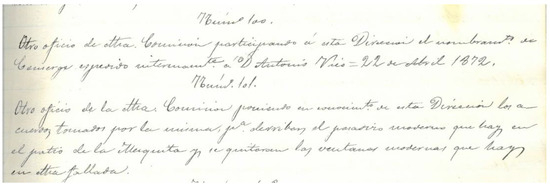 Núm.º 100.
Otro oficio de dtra. Comision participando á esta Direccion el nombramto. de
Conserge espedido interinamte. a D. Antonio Vico = 22 de Abril 1872.
Núm.º 101.
Otro oficio de la dtra. Comision poniendo en conocimto. de esta Direccion los a
cuerdos tomados por la misma, pa. derribar el parasiso moderno que hay en
el patio de la Mezquita y se quitaran las ventanas modernas que hay
en dtra fachada.